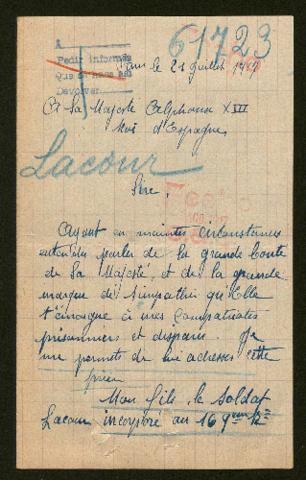 61723
A
Pedir informes
Que se hace así
Devolver
le 21 Juillet
A Sa Majesté Alphonse XIII
Roi d'Espagne
Lacour
Sire,
Ayant en maintes circonstances
entendu parler de la grande bonté
de Sa Majesté et de la grande
marque de Simpathie qu'Elle
témoigne à mes compatriotes
prisonniers et disparus. Je
me permets de lui adresser cette
prière
Mon fils le Soldat
Lacour incorporé au 169